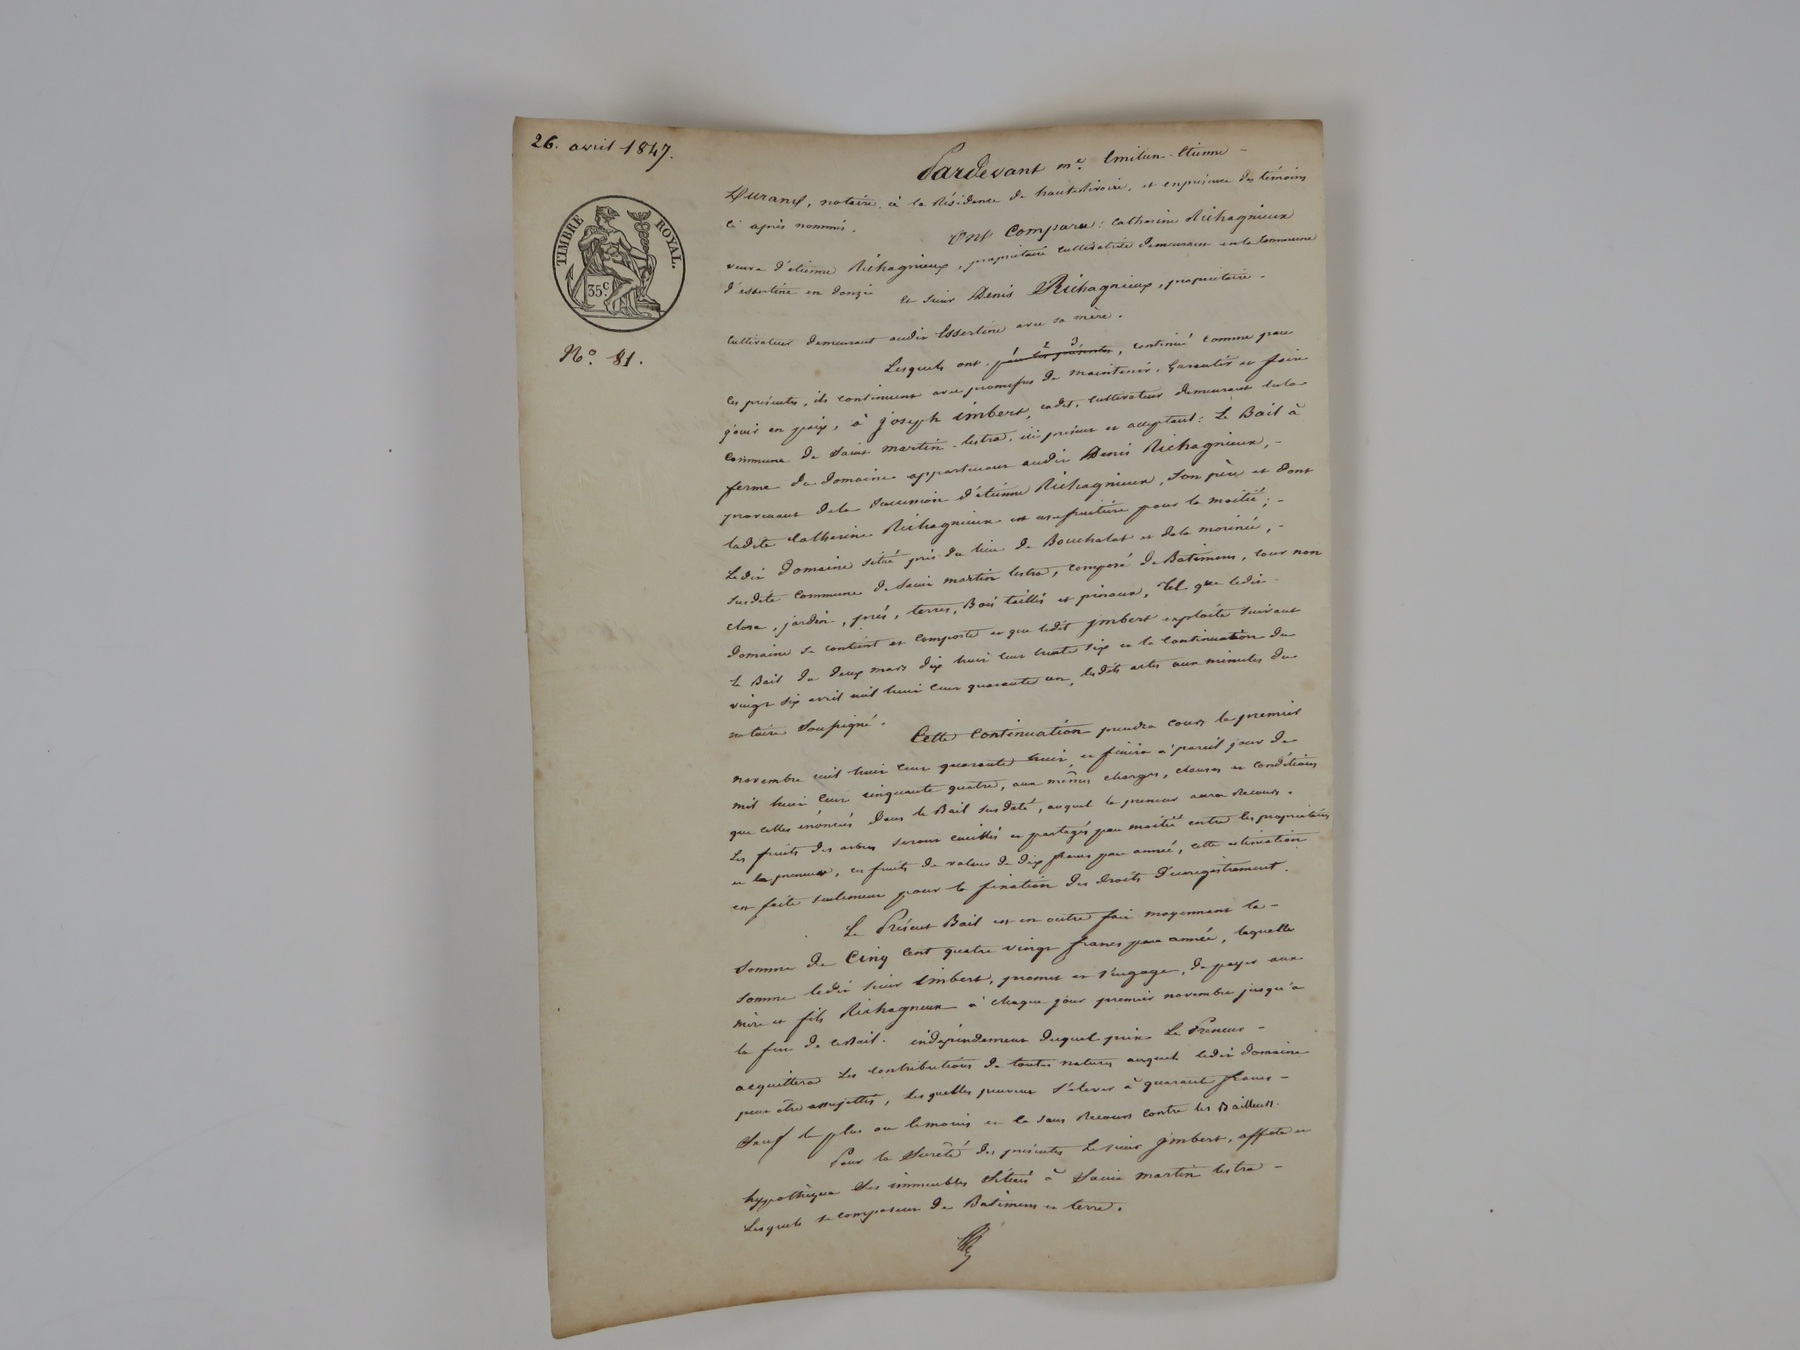 26. avril 1847.
TIMBRE ROYAL.
35c
No. 81.
Pardevant me. Emilien Etienne
Durand, notaire à la Résidence de hauterivoire, et en présence des témoins
ci après nommés.
Ont Comparu : Catherine Richagnieux
veuve d'étienne Richagnieux, propriétaire cultivatrice demeurant en la Commune
d'essertine en donzie
et sieur Denis Richagnieux, propriétaire
cultivateur demeurant audit Essertine avec sa mère.
Lesquels ont par les présentes, 2 3 continué comme par
ces présentes, ils continuent avec promesse de maintenir, garantir et faire
jouir en paix, à joseph imbert, cadet, cultivateur demeurant en la
Commune de saint martin lestra, ici présent et acceptant : Le Bail à
ferme du domaine appartenant audit Denis Richagnieux,
provenant dela succession d'étienne Richagnieux, son père et dont
ladite Catherine Richagnieux est usufruitière pour la moitié ;
Ledit domaine situé près du lieu de Bouchalat et dela morinée,
susdite commune de saint martin lestra, composé de Batimens, cour non
close, jardin, prés, terres, Bois taillis et pinaux, tel que ledit
domaine se contient et comporte et que ledit jmbert exploite suivant
le Bail du deux mars dix huit cent trente six et la continuation du
vingt six avril mil huit cent quarante un, lesdits actes aux minutes du
notaire soussigné.
Cette Continuation prendra cours le premier
novembre mil huit cent quarante huit, et finira à pareil jour de
mil huit cent cinquante quatre, aux mêmes charges, clauses et conditions
que celles énoncées dans le Bail susdaté, auquel le preneur aura recours.
Les fruits des arbres seront cueillis et partagés par moitié entre les propriétaires
et le preneur, ces fruits de valeur de dix francs par année, cette estimation
est faite seulement pour la fixation des droits d'enregistrement.
Le Présent Bail est en outre fait moyennant la
somme de Cinq Cent quatre vingt francs par année, laquelle
somme ledit sieur imbert, promet et s'engage, de payer aux
mère et fils Richagnieux à chaque jour premier novembre jusqu'à
la fin de ce Bail. indépendament duquel prix Le Preneur
acquittera les contributions de toutes natures auxquel ledit domaine
peut être assujetti, lesquelles peuvent s'élever à quarante francs
sauf le plus ou lemoins et le sans Recours contre les Bailleurs.
Pour la Sureté des présentes le sieur jmbert, affecte et
hypothèque Ses immeubles Situés à saint martin lestra
Lesquels se composent de Batimens et terre.